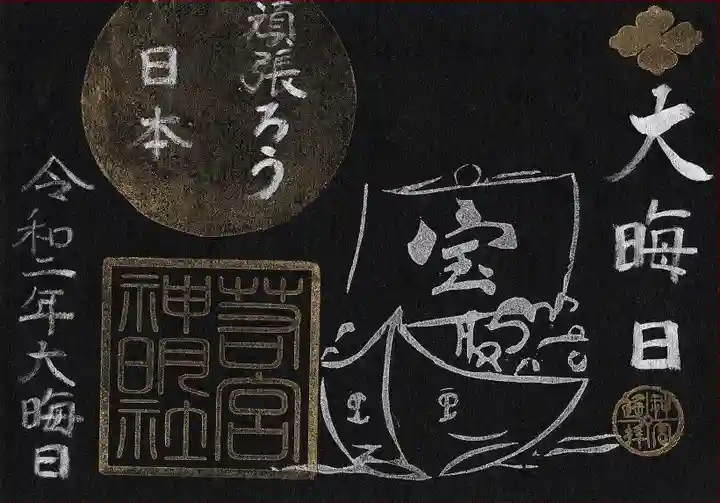 大晦日
頑張ろう
日本
宝
若宮
神明社
令和二年大晦日